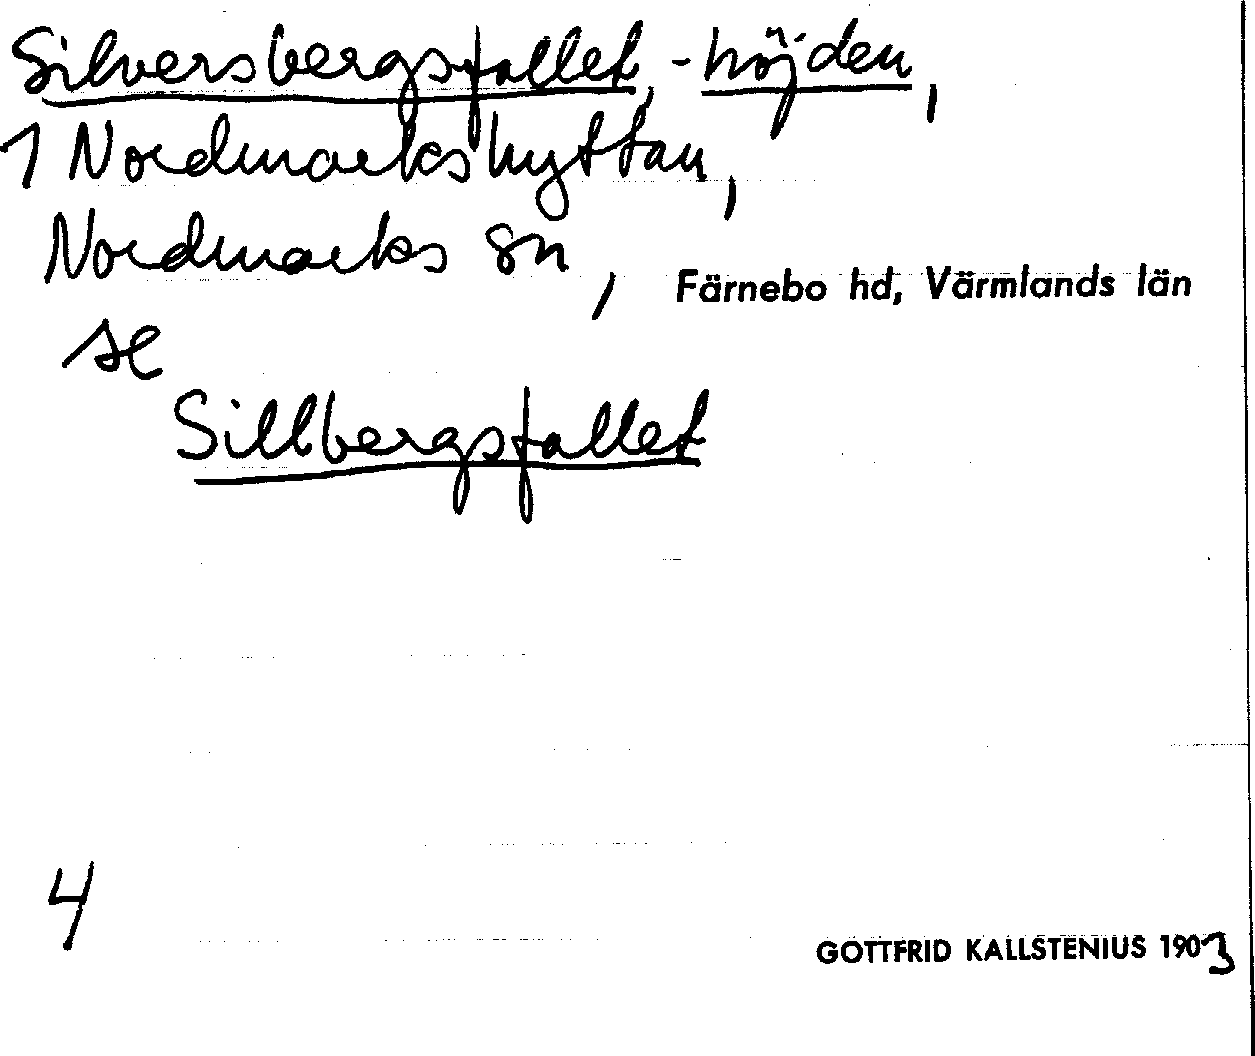 Silversbergsfallet, -höjden,
1 Nordmarkshyttan,
Nordmarks sn, Färnebo hd, Värmlands län
se
Sillbergsfallet
4
GOTTFRID KALLSTENIUS 1903